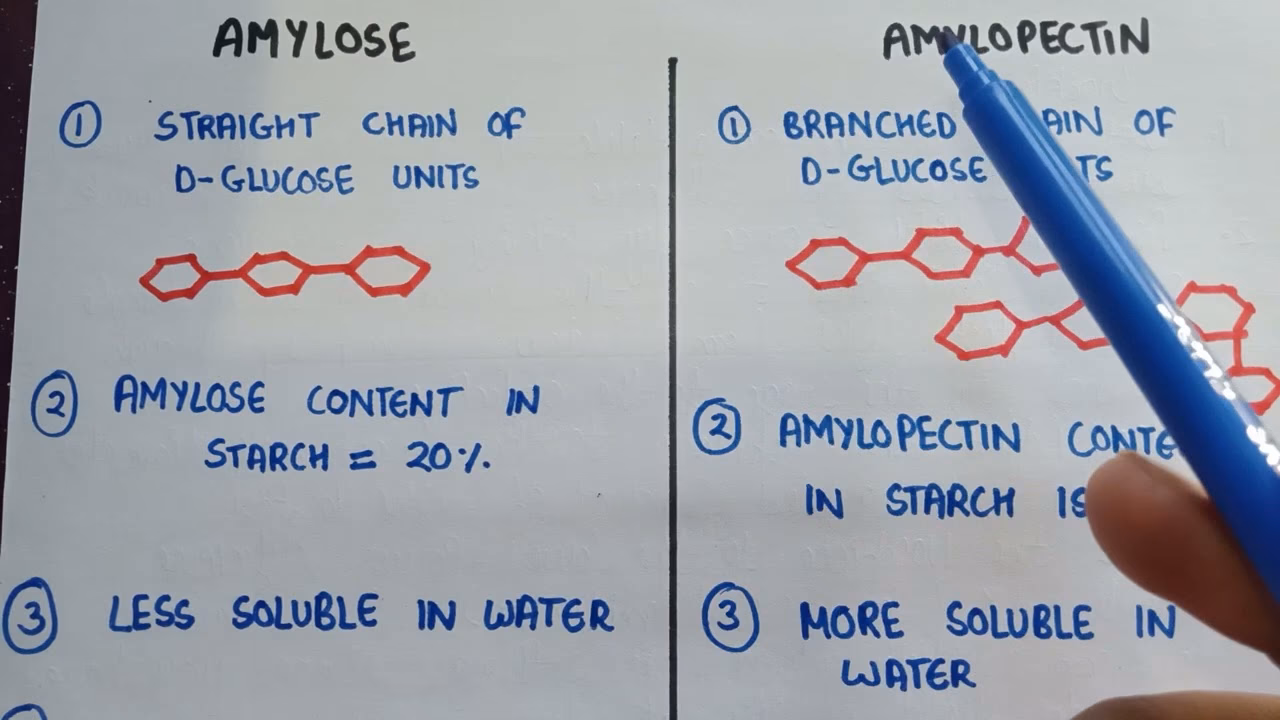 AMYLOSE
① STRAIGHT CHAIN OF
D-GLUCOSE UNITS
② AMYLOSE CONTENT IN
STARCH = 20%.
③ LESS SOLUBLE IN WATER
AMYLOPECTIN
① BRANCHED AIN OF
D-GLUCOSE TS
② AMYLOPECTIN CONTE
IN STARCH IS
③ MORE SOLUBLE IN
WATER